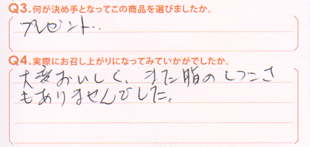 Q3.何が決め手となってこの商品を選びましたか。
プレゼント..
Q4.実際にお召し上がりになってみていかがでしたか。
大変おいしく、また脂のしつこさ
もありませんでした。